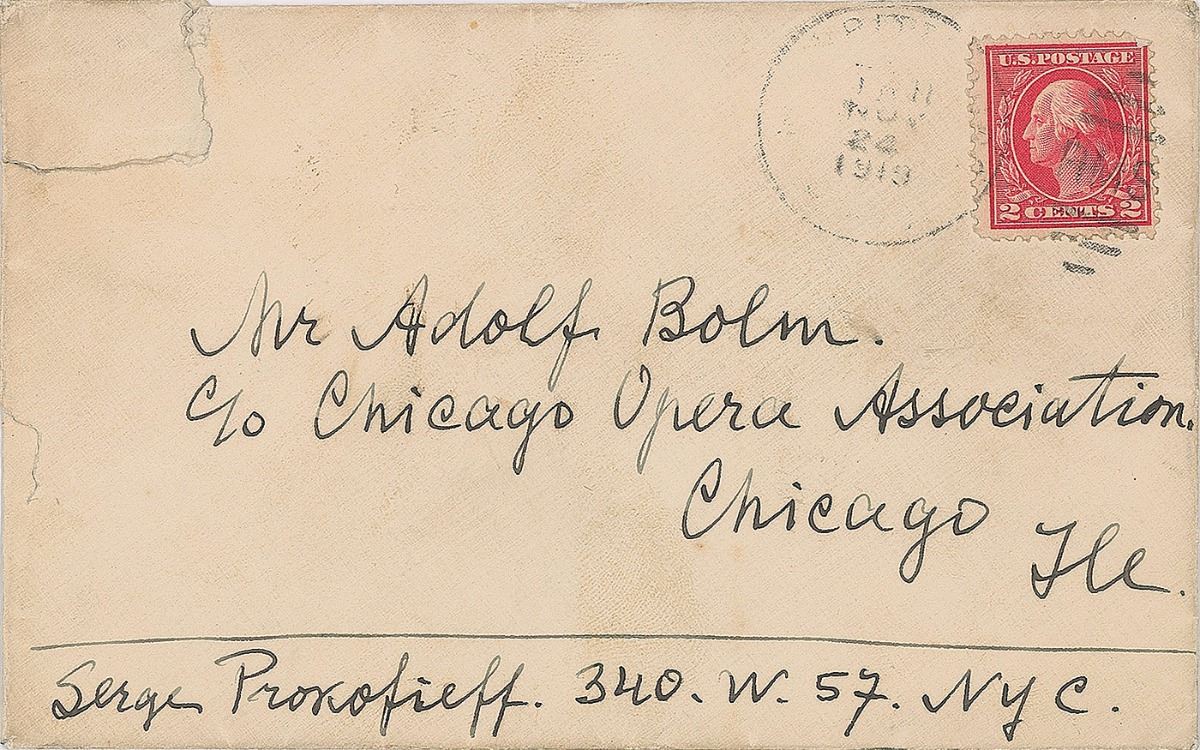 U.S. POSTAGE
2 CENTS 2
NOV
24
1919
Mr Adolf Bolm.
c/o Chicago Opera Association.
Chicago
Ile.
Serge Prokofieff. 340. W. 57. N Y C.